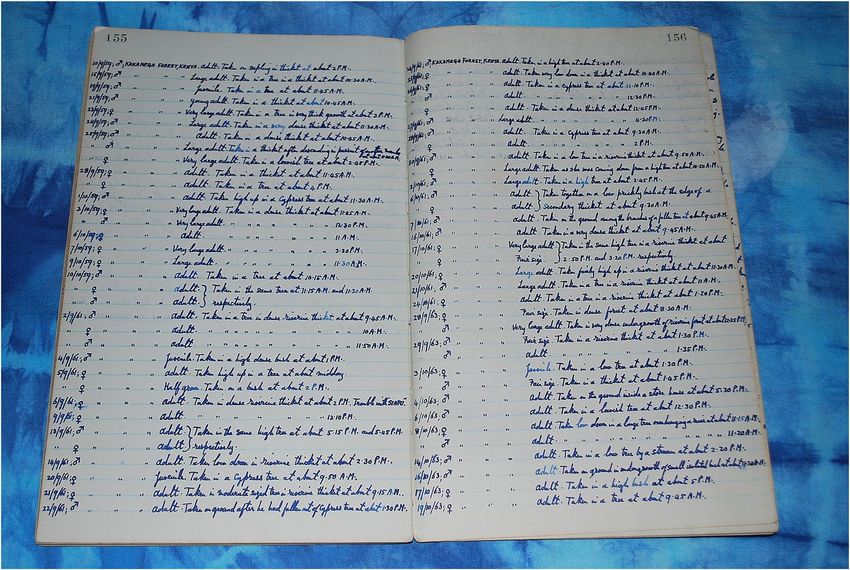 155
10/9/59; ♂, KAKAMEGA FOREST, KENYA. Adult. Taken on sapling in thicket at about 2 P.M.
15/9/59; ♂ " " " Large adult. Taken in a tree in a thicket at about 10.30 A.M.
19/9/59; ♂ " " " Juvenile. Taken in a tree at about 11.45 A.M.
21/9/59; ♂ " " " Young adult. Taken in a thicket at about 10.45 A.M.
23/9/59; ♀ " " " Very large adult. Taken in a tree in very thick growth at about 2 P.M.
24/9/59; ♂ " " " Large adult. Taken in a very dense thicket at about 11.30 A.M.
25/9/59; ♂ " " " Adult. Taken in a dense thicket at about 10.45 A.M.
" ♂ " " " Large adult. Taken in a thicket after descending in pursuit of
" ♀ " " " Very large adult. Taken in a lowish tree at about 2.45 P.M.
28/9/59; ♂ " " " Adult. Taken in a thicket at about 11.45 A.M.
" ♀ " " " Adult. Taken in a tree at about 4 P.M.
1/10/59; ♂ " " " Adult. Taken high up in a cypress tree at about 11.30 A.M.
2/10/59; ♀ " " " Very large adult. Taken in a dense thicket at about 11.45 A.M.
" ♂ " " " Very large adult. " " " " " " 12.30 P.M.
6/10/59; ♀ " " " Adult. " " " " " " 11 A.M.
7/10/59; ♀ " " " Very large adult. " " " " " " 2.30 P.M.
9/10/59; ♀ " " " Large adult. " " " " " " 11.30 A.M.
10/10/59; ♂ " " " Adult. Taken in a tree at about 10.15 A.M.
" ♀ " " " Adult. } Taken in the same tree at 11.15 A.M. and 11.30 A.M.
" ♂ " " " Adult. } respectively.
2/9/61; ♂ " " " Adult. Taken in a tree in dense riverine thicket at about 9.45 A.M.
" ♀ " " " Adult. " " " " " " 10 A.M.
" ♂ " " " Adult. " " " " " " 11.50 A.M.
4/9/61; ♂ " " " Juvenile. Taken in a high dense bush at about 1 P.M.
5/9/61; ♂ " " " Adult. Taken high up in a tree at about midday.
" ♀ " " " Half grown. Taken in a bush at about 2 P.M.
6/9/61; ♀ " " " Adult. Taken in dense riverine thicket at about 2 P.M.
9/9/61; ♀ " " " Adult. " " " " " " 12.10 P.M.
13/9/61; ♂ " " " Adult. } Taken in the same high tree at about 5.15 P.M. and 5.45 P.M.
" ♀ " " " Adult. } respectively.
14/9/61; ♀ " " " Adult. Taken low down in riverine thicket at about 2.30 P.M.
20/9/61; ♂ " " " Juvenile. Taken in a cypress tree at about 9.50 A.M.
21/9/61; ♀ " " " Adult. Taken in moderate sized tree in riverine thicket at about 9.15 A.M.
22/9/61; ♂ " " " Adult. Taken on ground after he had fallen out of cypress tree at about 1.30 P.M.
156
♂, KAKAMEGA FOREST, KENYA. Adult. Taken in a high tree at about 2.40 P.M.
Adult. Taken very low down in a thicket at about 10.40 A.M.
Adult. Taken in a cypress tree at about 11.10 P.M.
Adult. " " " " " 12.30 P.M.
Adult. Taken in a dense thicket at about 12.45 P.M.
Large adult. " " " " " 4.30 P.M.
Adult. Taken in a cypress tree at about 9.30 A.M.
Adult. " " " " " 2 P.M.
Adult. Taken in a low tree in a riverine thicket at about 9.50 A.M.
Large adult. Taken as she was coming down from a high tree at about 10.50 A.M.
Large adult. Taken in a high tree at about 2.45 P.M.
Adult. } Taken together in a low prickly bush at the edge of a
Adult. } secondary thicket at about 9.30 A.M.
Adult. Taken on the ground among the branches of a fallen tree at about 9.45 A.M.
Adult. Taken in a very dense thicket at about 9.45 A.M.
Very large adult. } Taken in the same high tree in a riverine thicket at about
Fair size. } 2.50 P.M. and 3.20 P.M. respectively.
20/10/61; Large adult. Taken fairly high up in a riverine thicket at about 11.30 A.M.
21/10/61; Large adult. Taken in a tree in a riverine thicket at about 11 A.M.
24/10/61; Adult. Taken in a tree in a riverine thicket at about 1.20 P.M.
28/9/63; Fair size. Taken in dense forest at about 3.30 P.M.
Very large adult. Taken in very dense undergrowth of riverine forest at about 12.25 P.M.
29/9/63; ♂ Fair size. Taken in a riverine thicket at about 1.30 P.M.
Adult. " " " " " " 1.35 P.M.
3/10/63; Juvenile. Taken in a low tree at about 1.30 P.M.
Fair size. Taken in a thicket at about 1.45 P.M.
4/10/63; Adult. Taken on the ground inside a store house at about 5.30 P.M.
6/10/63; Adult. Taken in a lowish tree at about 12.30 P.M.
8/10/63; Adult. Taken low down in a large tree overhanging a river at about 11.15 A.M.
Adult. " " " " " " 11.20 A.M.
14/10/63; Adult. Taken in a low tree by a stream at about 2.20 P.M.
16/10/63; Adult. Taken on ground in undergrowth of small at about 11.30 A.M.
17/10/63; ♀ Adult. Taken in a high bush at about 5 P.M.
19/10/63; ♀ Adult. Taken in a tree at about 9.45 A.M.